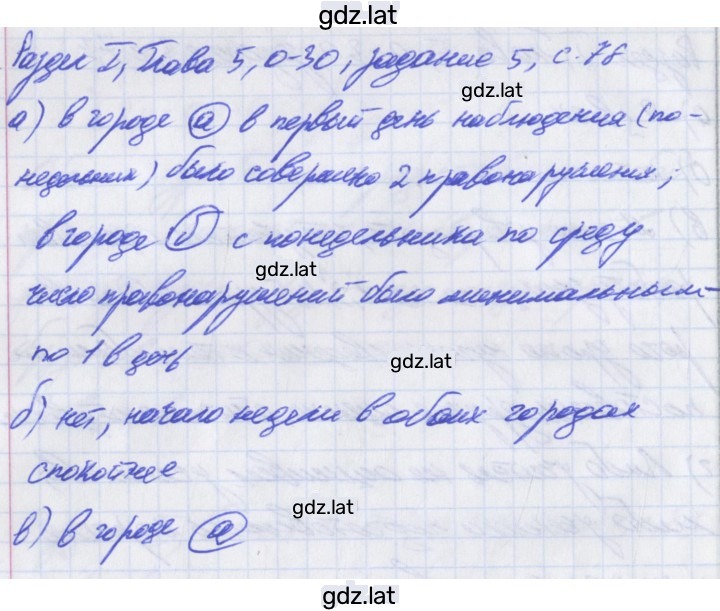 gdz.lat
Раздел I, Глава 5, 0-30, задание 5, с. 78
gdz.lat
а) в городе а в первый день наблюдения (по-
недельник) было совершено 2 правонарушения;
в городе б с понедельника по среду
gdz.lat
число правонарушений было минимальным -
по 1 в день
gdz.lat
б) нет, начало недели в обоих городах
спокойнее
gdz.lat
в) в городе а
gdz.lat